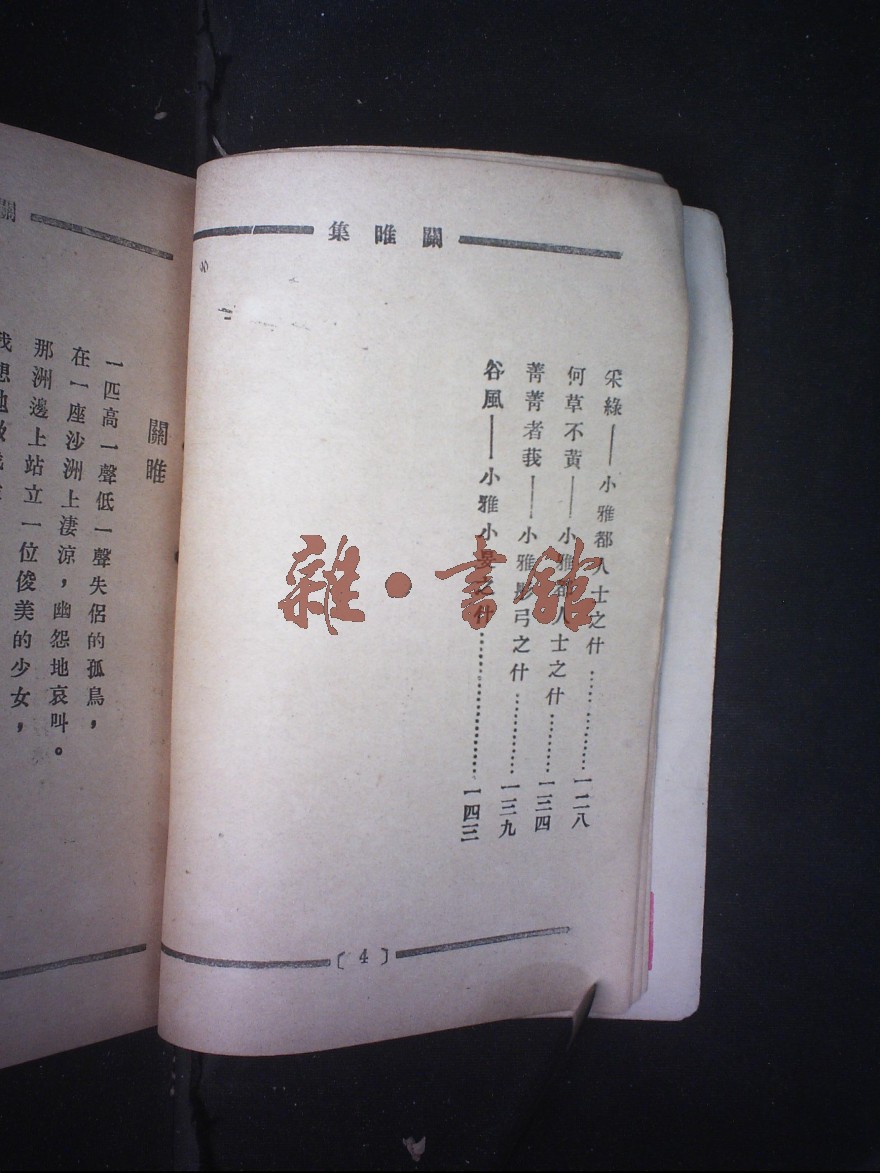 關雎集
采綠——小雅都人士之什…………一二八
何草不黃——小雅都人士之什………一三四
菁菁者莪——小雅彤弓之什…………一三九
谷風——小雅小旻之什………………一四三
〔4〕
關
關雎
一匹高一聲低一聲失侶的孤鳥，
在一座沙洲上淒涼，幽怨地哀叫。
那洲邊上站立一位俊美的少女，
我想她
雜·書館